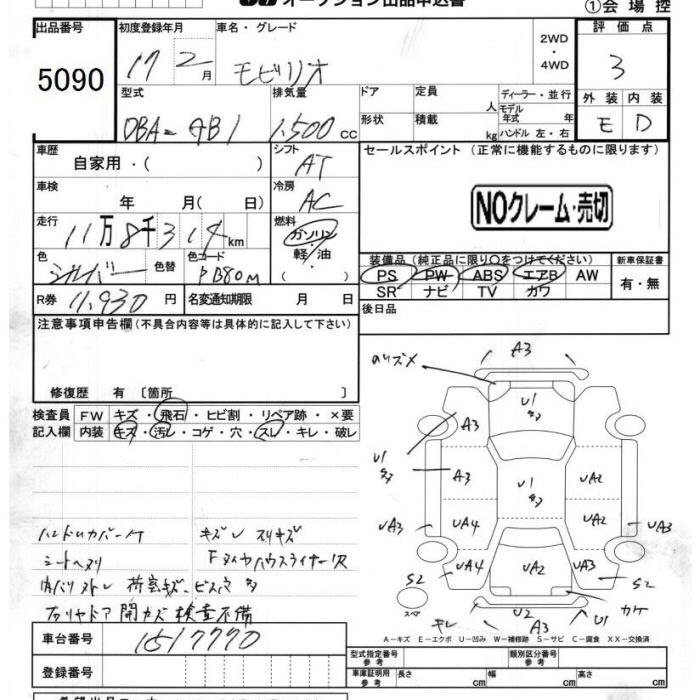 オークション出品申込書
①会場控
出品番号
初度登録年月
車名・グレード
2WD
・
4WD
評価点
5090
17 2 月
モビリオ
3
型式
排気量
ドア
定員
人
ディーラー・並行
モデル
年式 年
外装 内装
DBA-AB1
1,500 CC
形状
積載
kg
ハンドル 左・右
E D
車歴
自家用・( )
シフト
AT
セールスポイント (正常に機能するものに限ります)
車検
年 月( 日)
冷房
AC
NOクレーム・売切
走行
11万8千314km
燃料
ガソリン
軽・油
( )
色
シルバー
色替
色コード
PB80M
装備品 (純正品に限り○をつけてください)
新車保証書
PS PW ABS エアB AW
SR ナビ TV カワ
有・無
R券 11,930 円
名変通知期限 月 日
後日品
注意事項申告欄 (不具合内容等は具体的に記入して下さい)
修復歴 有 〔箇所 〕
検査員
記入欄
FW キズ・飛石・ヒビ割・リペア跡・×要
内装 キズ・汚レ・コゲ・穴・スレ・キレ・破レ
A3
U1
A3
U1
A3
U1
UA2
UA3
UA4
UA2
UA3
UA4
UA2
UA3
S2
S2
スペア
キレ
U2
A3
U1
カケ
ハンドルカバー
キズレ スリキズ
シートヘタリ
荷室キズ・ビス穴多
検査不備
A-キズ E-エクボ U-凹み W-補修跡 S-サビ C-腐食 XX-交換済
車台番号
1517770
型式指定番号
参考
類別区分番号
参考
登録番号
車庫証明用
参考
長さ cm
幅 cm
高さ cm